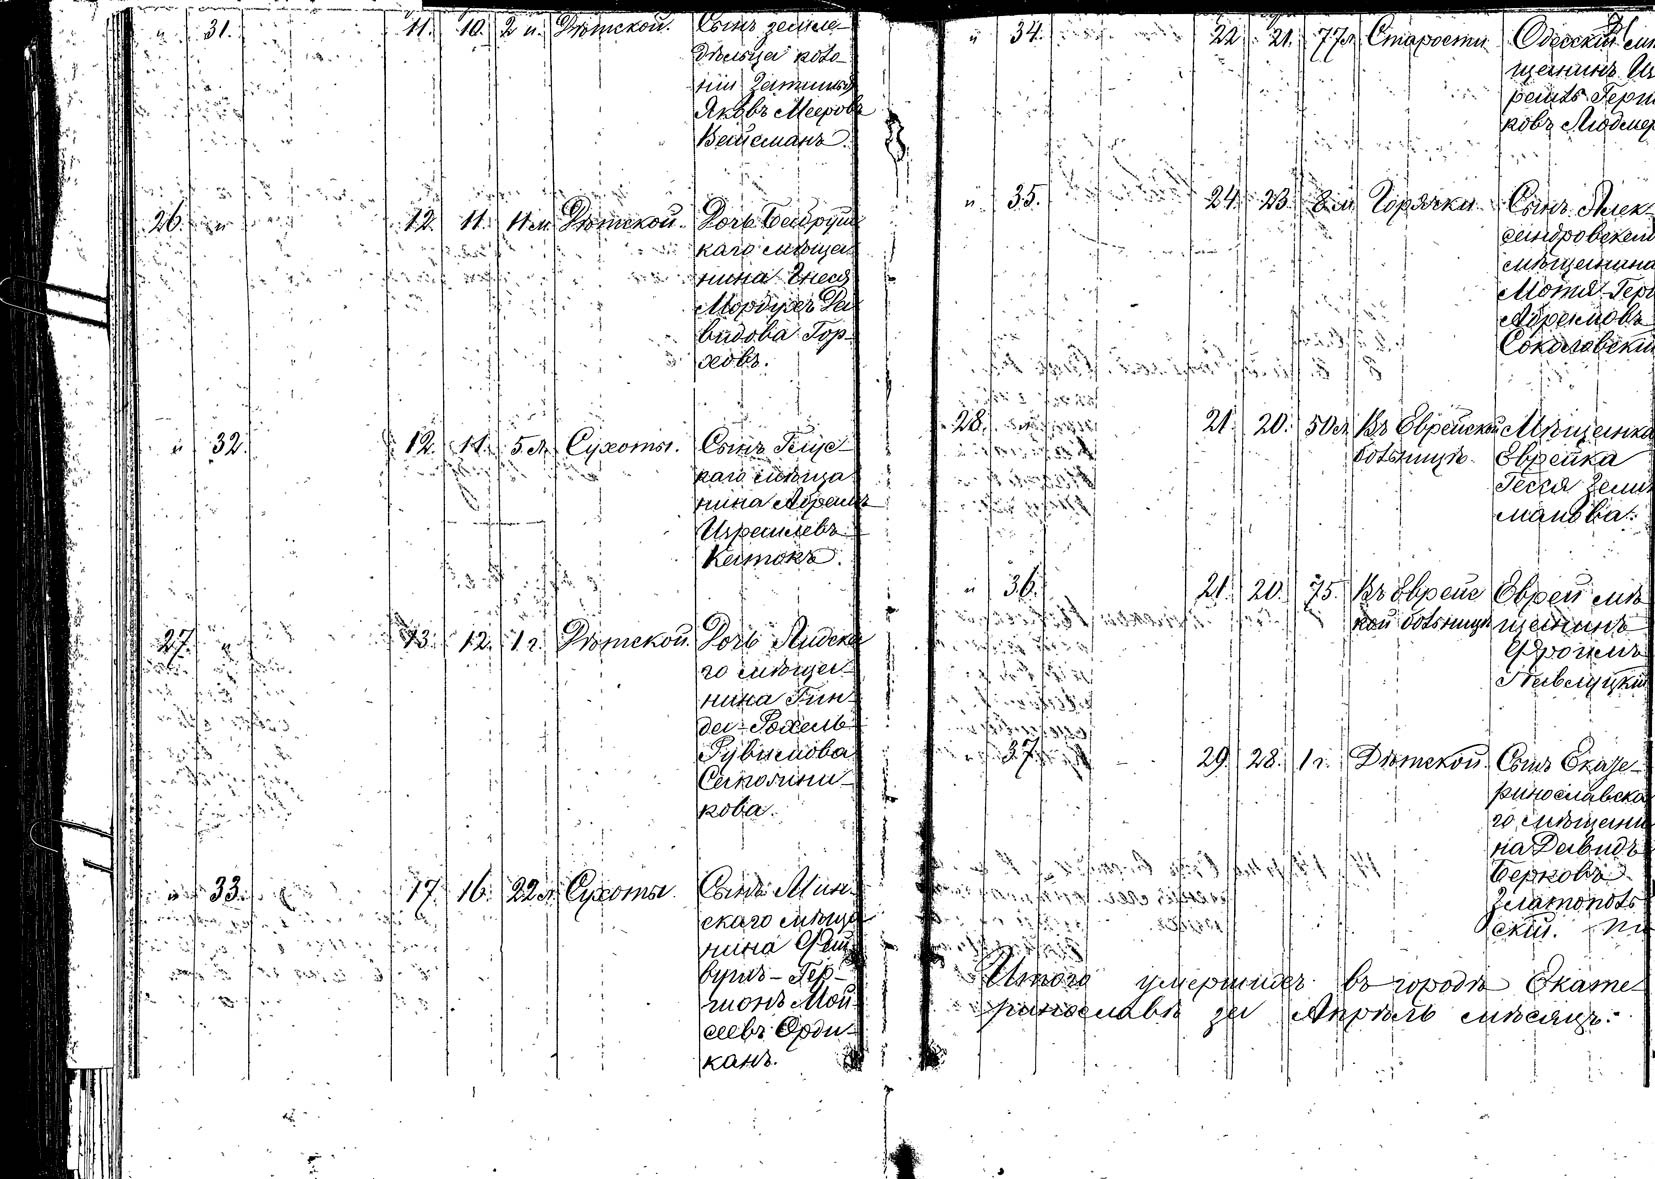 " 31. 11. 10. 2 н. Дѣтской. Сынъ земле-
дѣльца коло-
ніи Затишья
Яковъ Мееровъ
Вейсманъ.
26. " 12. 11. 11 м. Дѣтской. Дочь Бобруйс
каго мѣща
нина Гнеся
Мордухъ Да
видова Гор-
ховъ.
" 32. 12. 11. 5 л. Сухоты. Сынъ
каго мѣща
нина Абрамъ
Израилевъ
27. " 13. 12. 1 г. Дѣтской. Дочь Лидска
го мѣща-
нина Гин-
да-Рохель
Рувимова
кова.
" 33. 17. 16. 22 л. Сухоты. Сынъ Мин
скаго мѣща
нина Фай
вушъ-Гер-
шонъ Мой
сеевъ Орди
канъ.
" 34. 22. 21. 77 л. Старости Одесскій мѣ
щанинъ Из
раиль Герш
ковъ Людмер
" 35. 24. 23. 8 м Горячки Сынъ Алек-
сандровскаго
мѣщанина
Мотя-Герш
Абрамовъ
Соколовскій
28. 21. 20. 50 л. Въ Еврейской Мѣщанка
больницѣ. Еврейка
Гесся Зели
манова.
" 36. 21. 20. 75. Въ Еврейс Еврей мѣ
кой больницѣ щанинъ
Фроимъ
Павлуцкій
37. 29. 28. 1 г. Дѣтской. Сынъ Екате-
ринославска
го мѣщани
на Давидъ
Берковъ
Златополь
скій.
Итого умершихъ въ городѣ Екате
ринославѣ за Апрѣль мѣсяцъ: